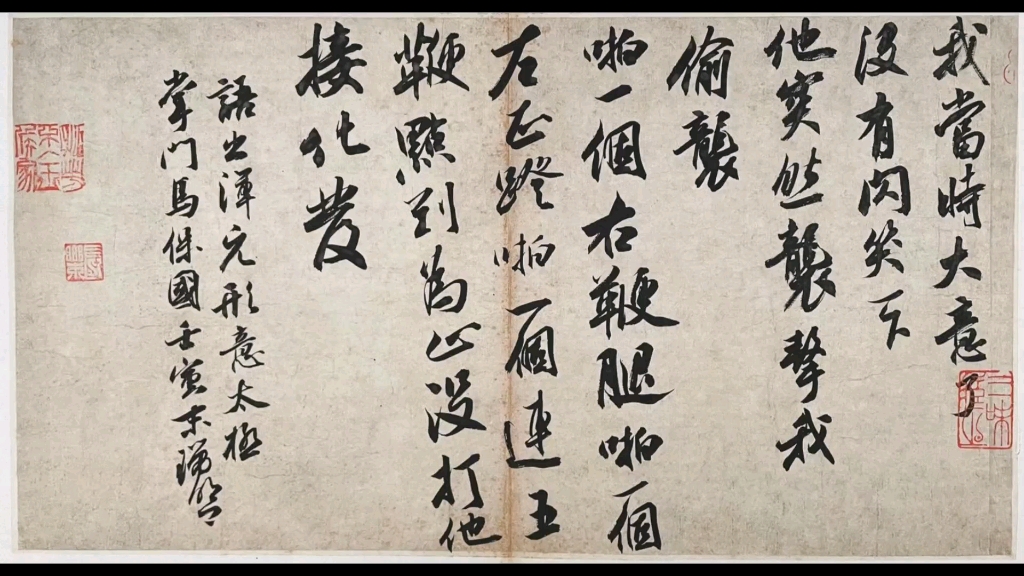 我當時大意了
没有閃笑下
他突然襲擊我
偷襲
啪一個右鞭腿啪一個
左正蹬啪一個連五
鞭點到為止没打他
接化發
語出渾元形意太極
掌門馬保國壬寅